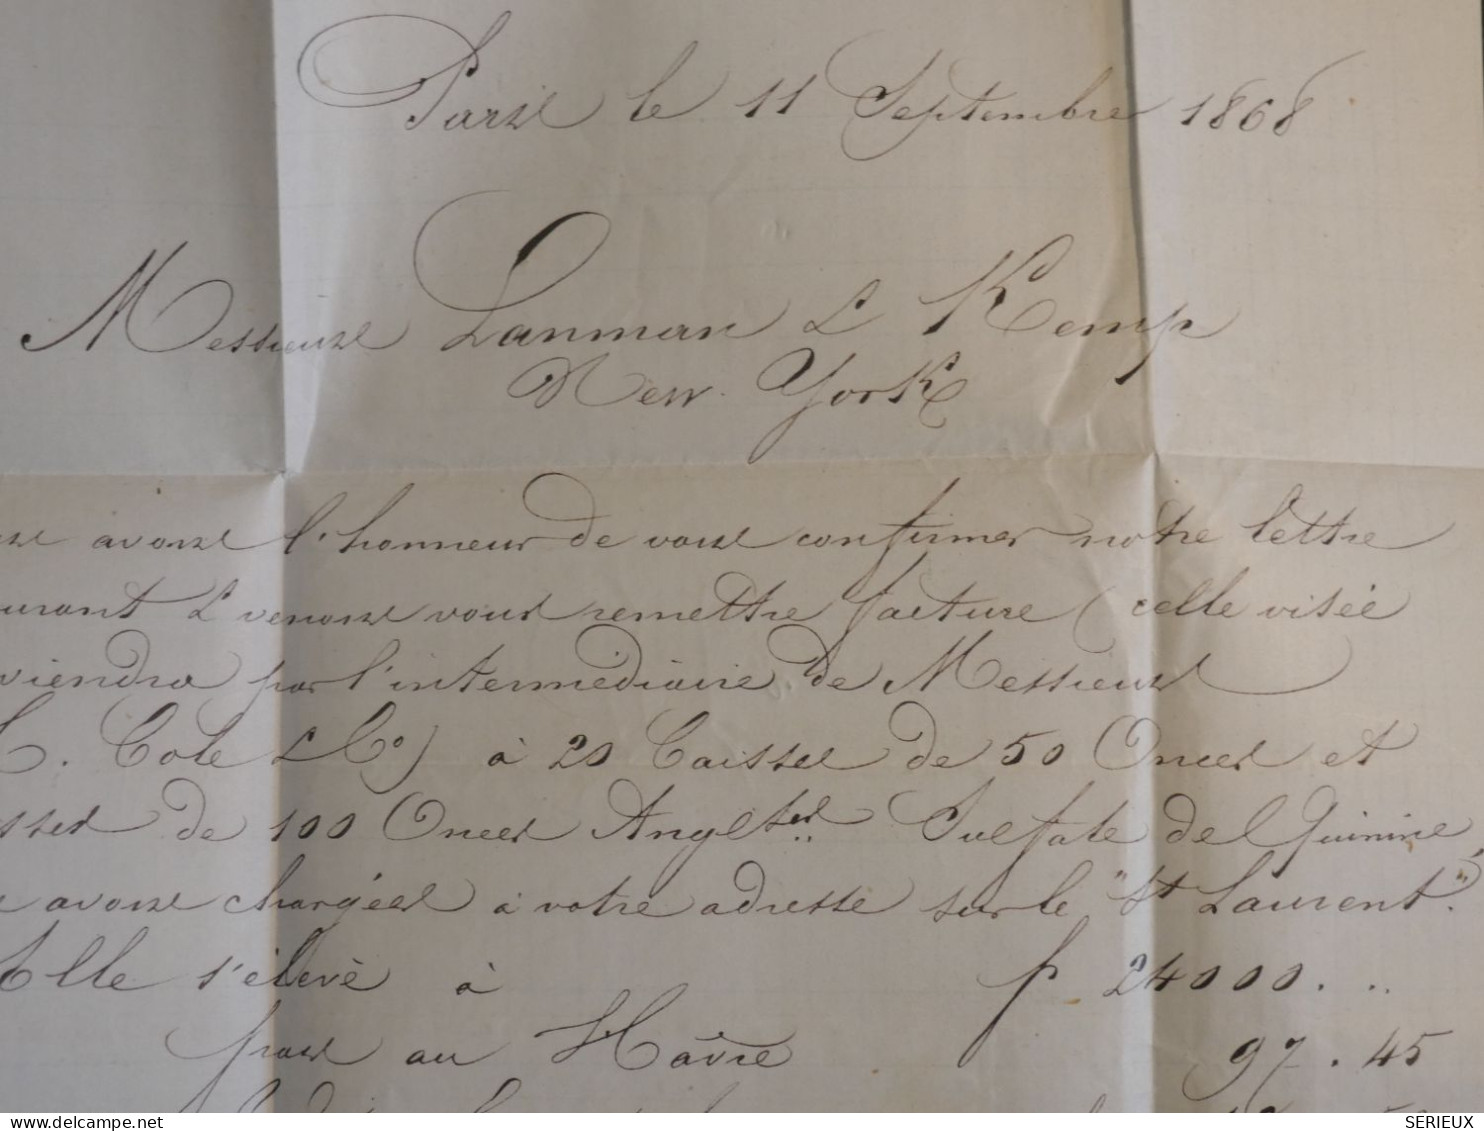 Paris le 11 Septembre 1868
Messieurs Lanman & Kemp
New. York
avons l'honneur de vous confirmer notre lettre
& venons vous remettre facture (celle visée
viendra par l'intermédiaire de Messieurs
Cole & Co) à 20 Caisses de 50 Onces et
de 100 Onces Anglses Sulfate de Quinine,
avons chargées à votre adresse sur le "St Laurent".
Elle s'élevè à f 24000. ..
frais au Hâvre 97.45
delcampe.net
SERIEUX